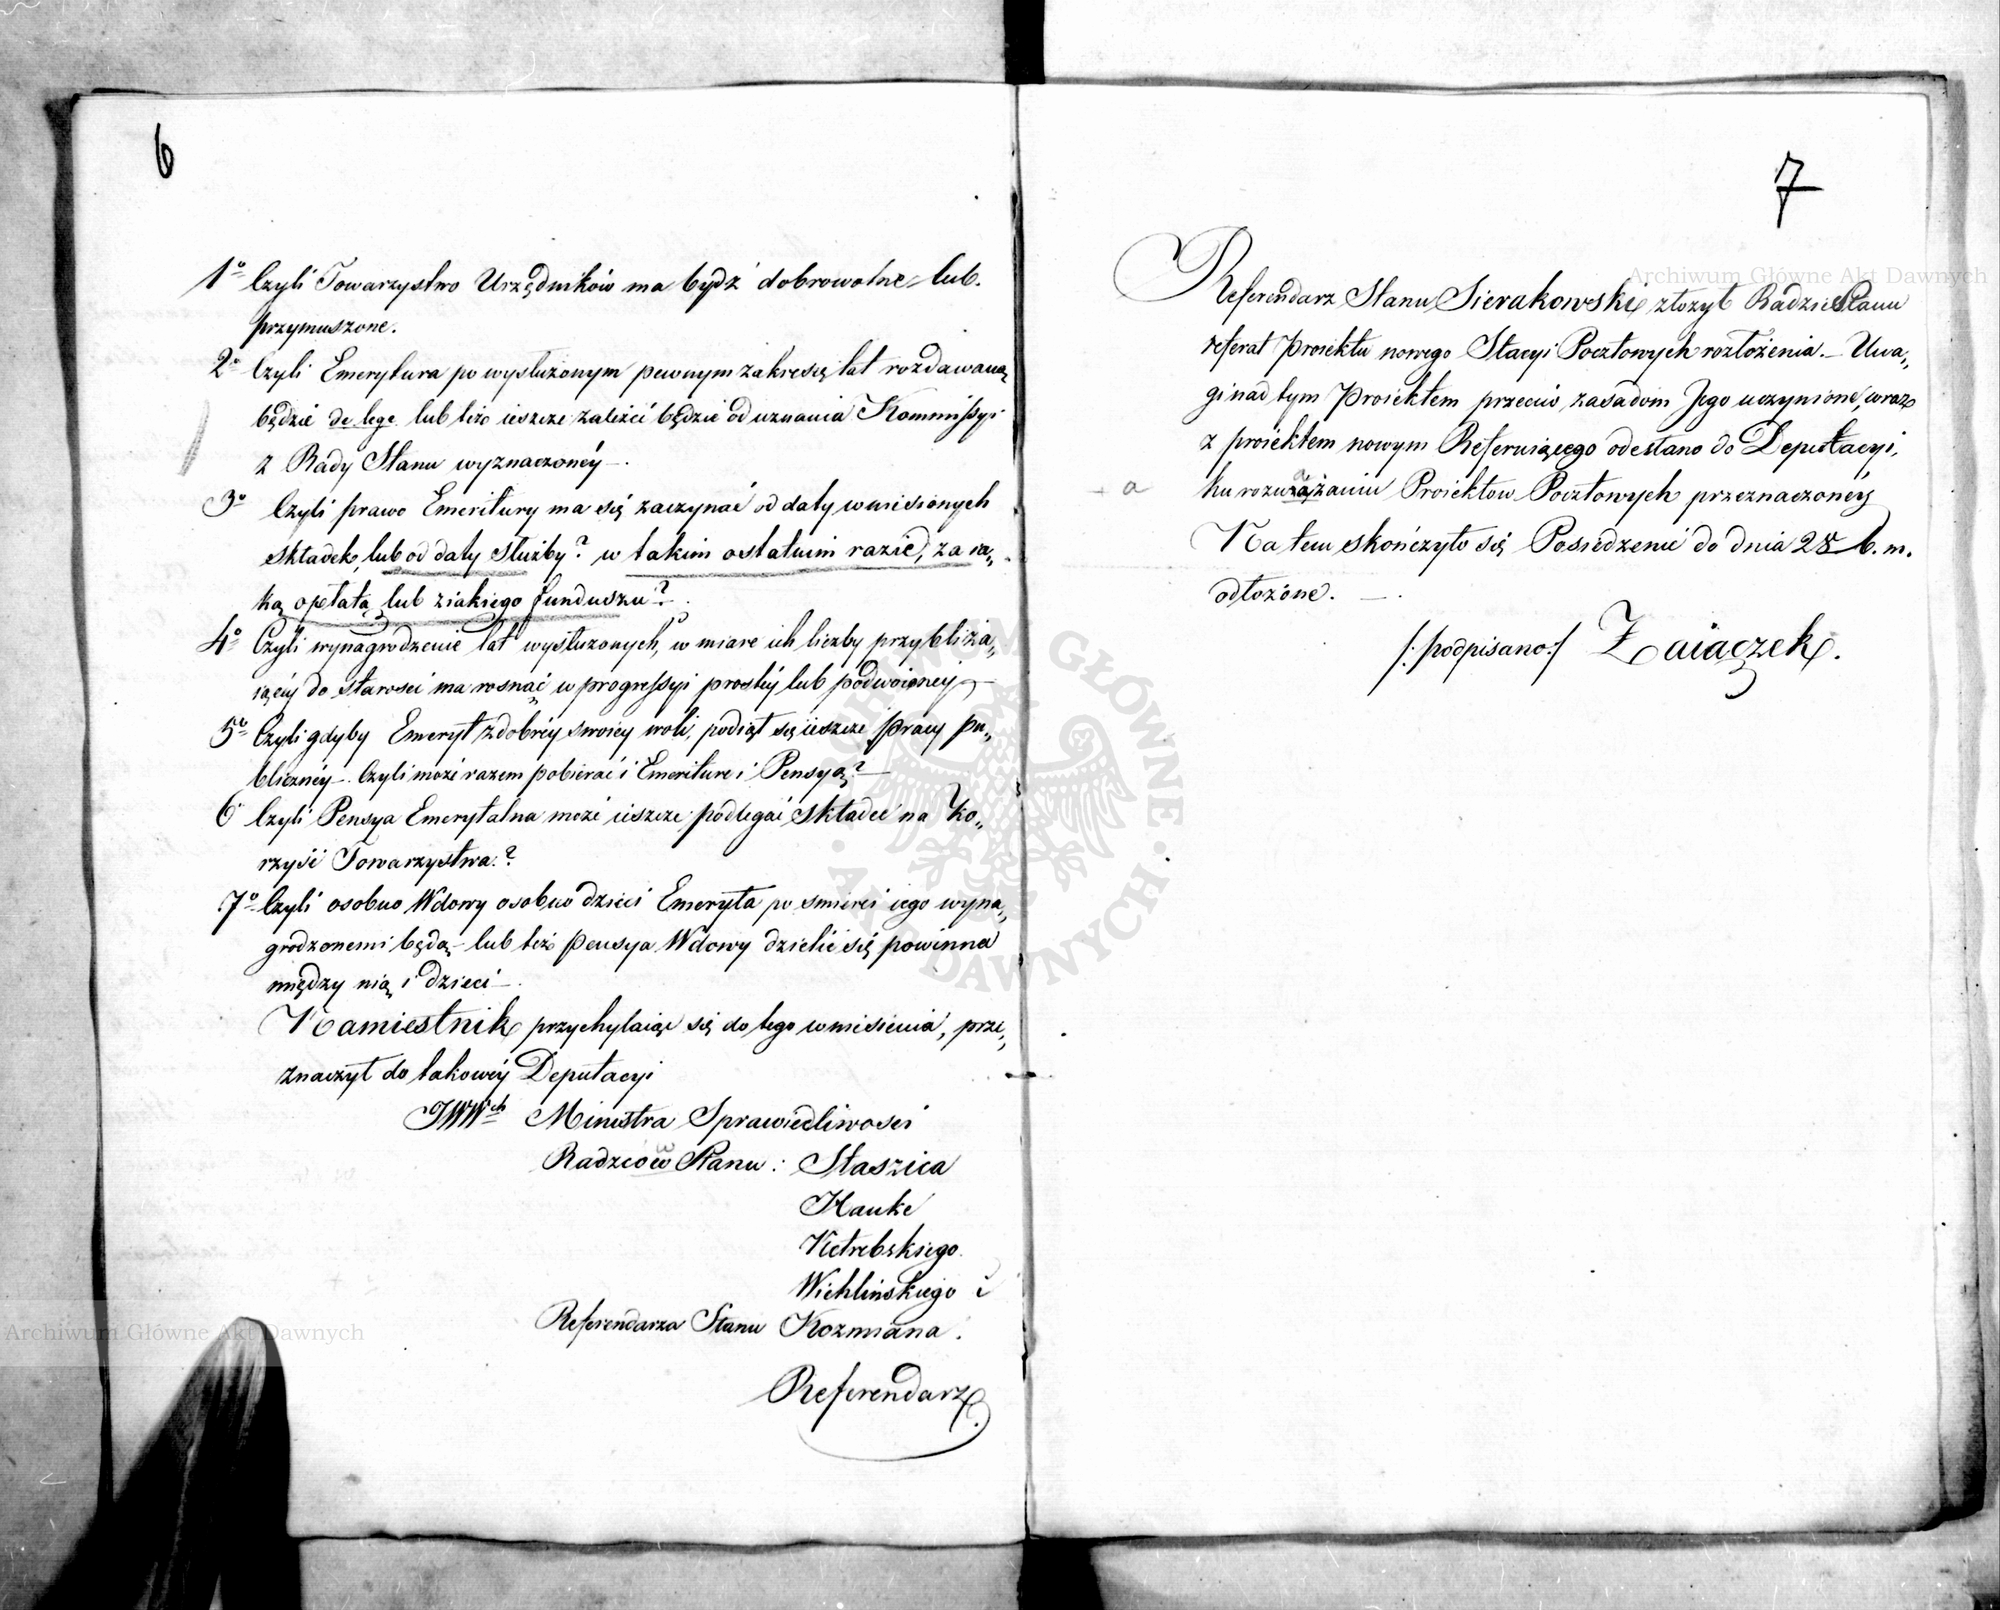 6
1o Czyli Towarzystwo Urzędników ma bydź dobrowolne lub
przymuszone.
2o Czyli Emerytura po wysłużonym pewnym zakresię lat rozdawaną
będzie de lege lub też ieszcze zależeć będzie od uznania Kommissyi
z Rady Stanu wyznaczonéy —.
3o Czyli prawo Emeritury ma się zaczynać od daty wniesionych
składek, lub od daty służby? w takim ostatnim razie, za ia„
ką opłatą lub z iakiego funduszu?
4o Czyli wynagrodzenie lat wysłużonych, w miarę ich liczby przybliża„
iącéy do starości ma rosnąć w progressyi prostéy lub podwoionéy —
5o Czyli gdyby Emeryt z dobréy swoiey woli, podiął się ieszcze pracy pu„
blicznéy — Czyli może razem pobierać i Emeriturę i Pensyą? —
6 Czyli Pensya Emerytalna może ieszcze podlegać składce na ko„
rzyść Towarzystwa?
7o Czyli osobno Wdowy osobno dzieci Emeryta po śmierci iego wyna„
grodzonemi będą — lub też Pensya Wdowy dzielić się powinna
między nią i dzieci —.
Namiestnik przychylaiąc się do tego wniesienia, prze„
znaczył do takowéy Deputacyi
JWWch Ministra Sprawiedliwości
Radzców Stanu: Staszica
Hauke
Kętrebskiego
Wichlińskiego i
Referendarza Stanu Kozmiana.
Referendarz
7
Referendarz Stanu Sierakowski złożył Radzie Stanu
referat Proiektu nowego Stacyi Pocztowych rozłożenia. — Uwa„
gi nad tym Proiektem przeciw zasadom Jego uczynione, wraz
z proiektem nowym Referuiącego odesłano do Deputacyi,
a ku rozważaniu Proiektow Pocztowych przeznaczonéy
Na tem skończyło się Posiedzenie do dnia 28 b. m.
odłożone. —.
/: podpisano :/ Zaiączek.
Archiwum Główne Akt Dawnych
Archiwum Główne Akt Dawnych
ARCHIWUM GŁÓWNE AKT DAWNYCH